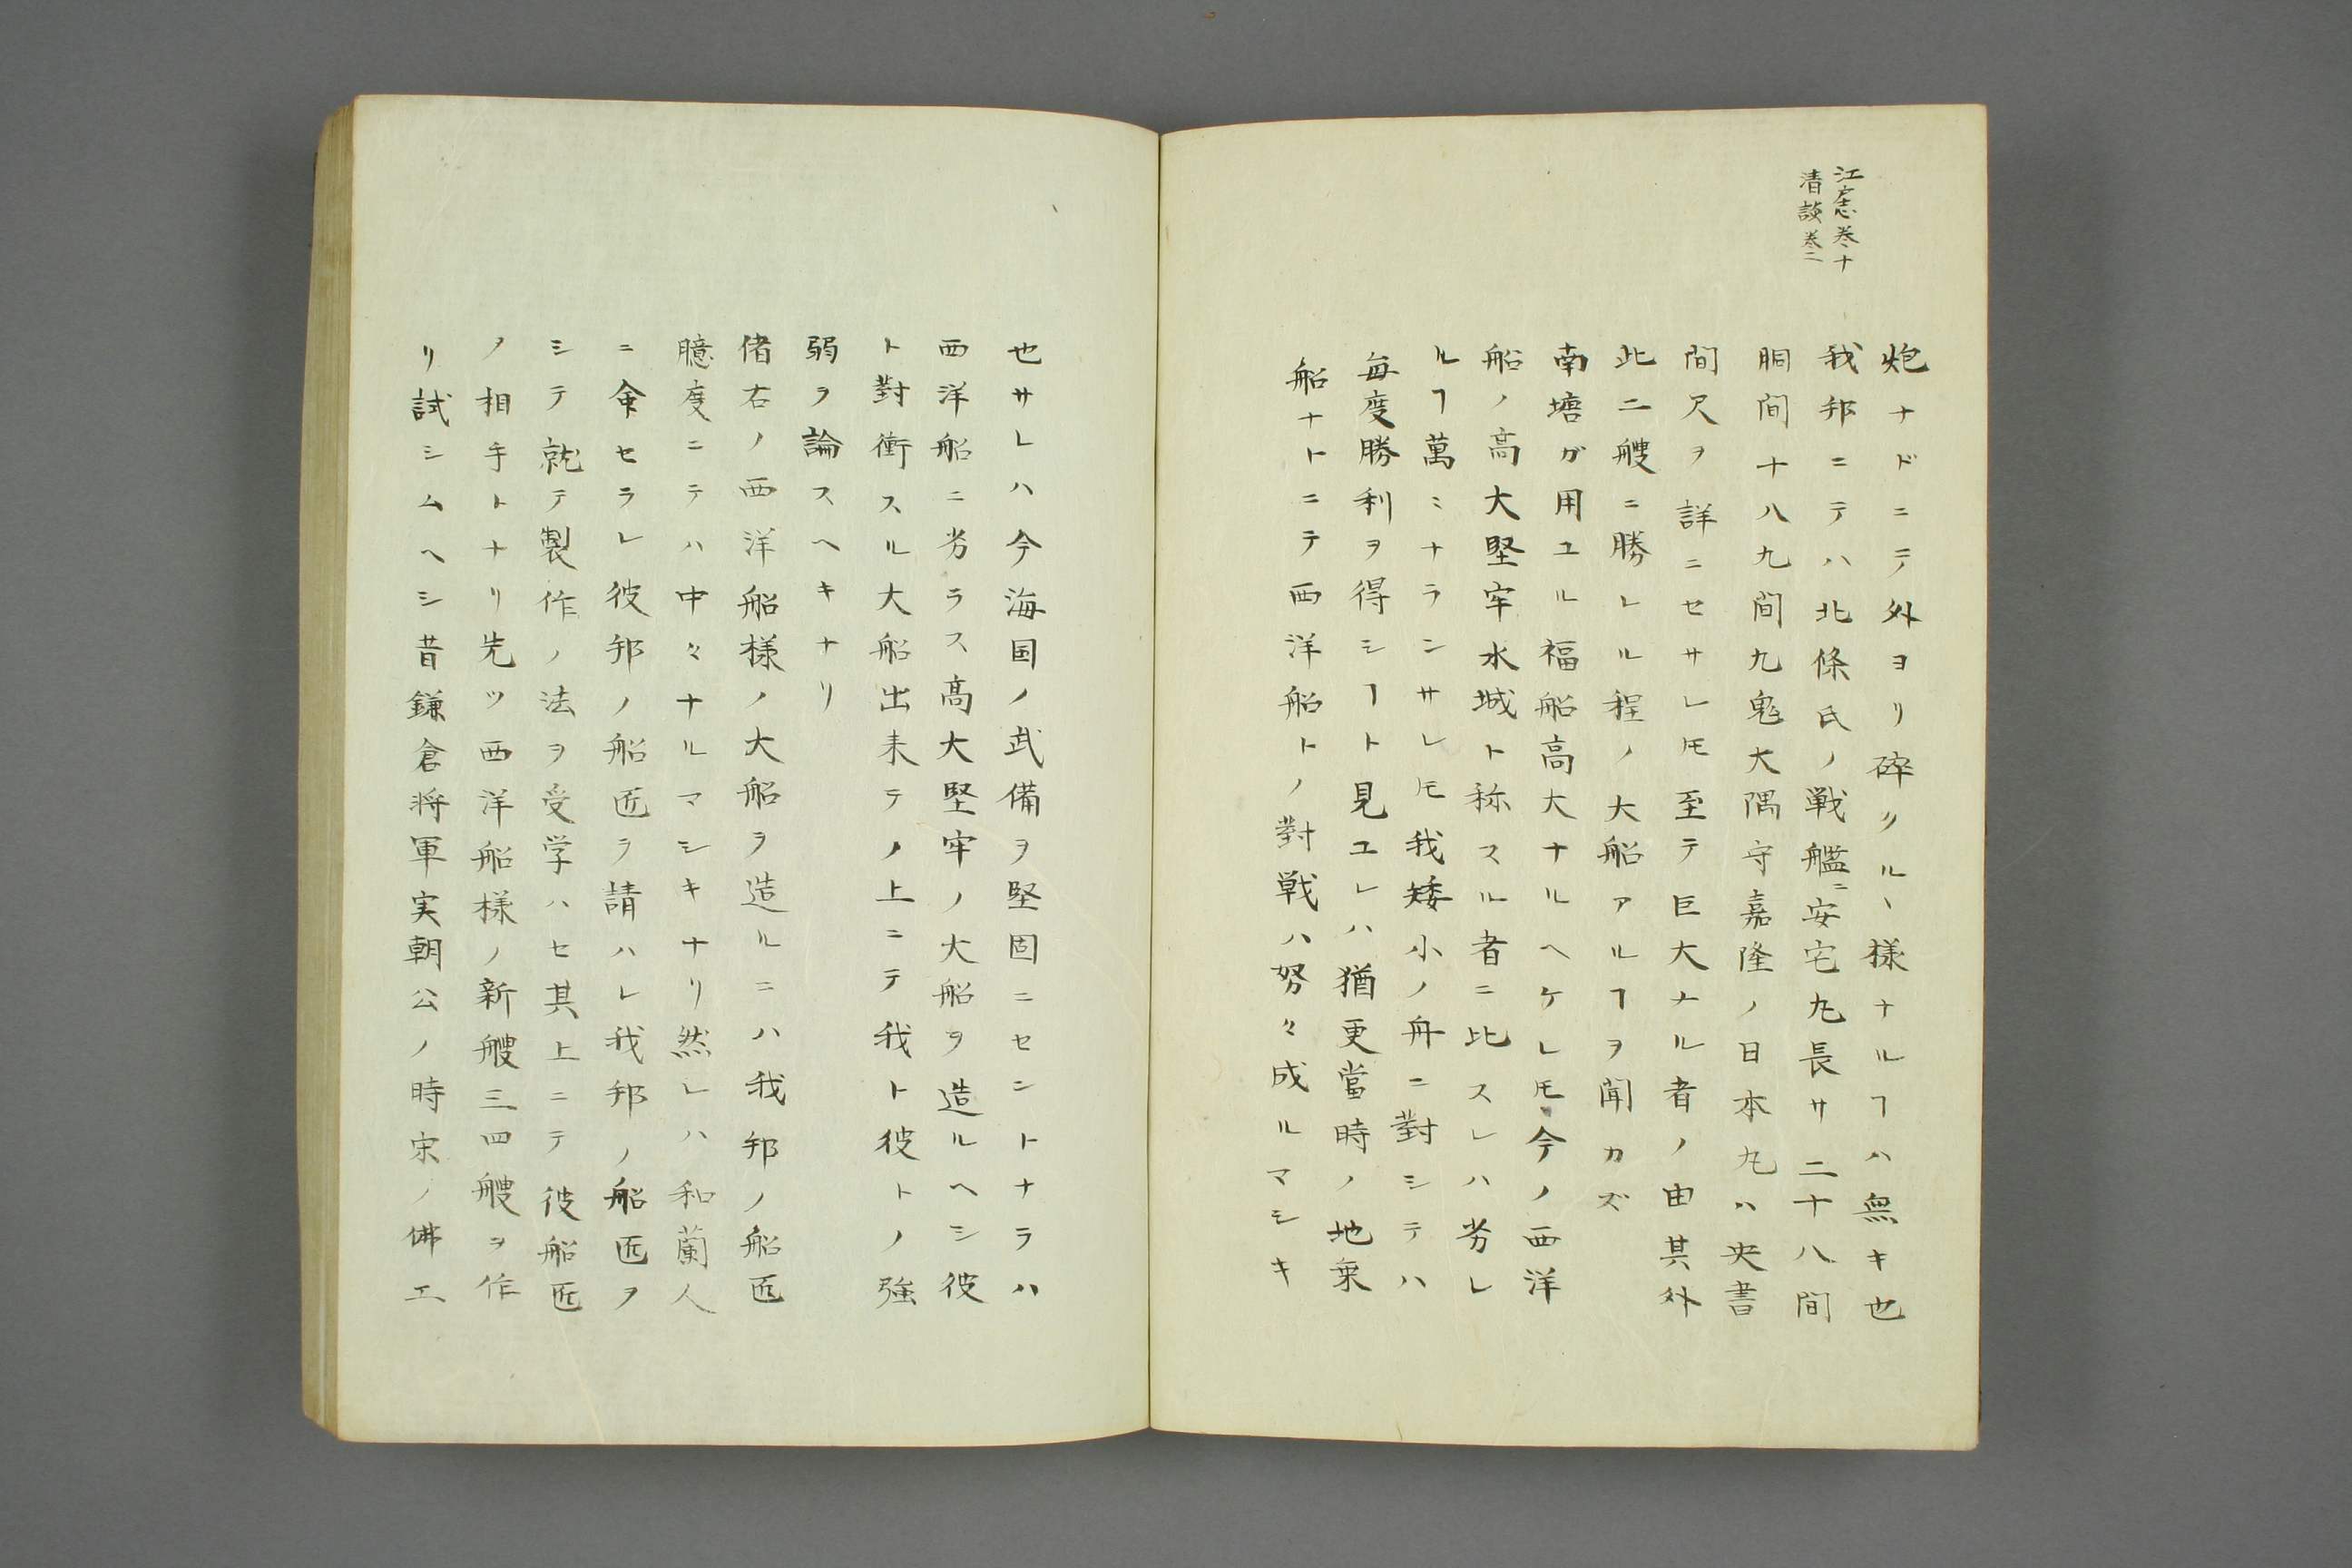 江戸志巻十
清談巻二
炮ナドニテ外ヨリ碎クル、様ナルヿハ無キ也
我邦ニテハ北條氏ノ戦艦ニ安宅丸長サ二十八間
胴間十八九間九鬼大隅守嘉隆ノ日本丸ハ史書
間尺ヲ詳ニセサレ𪜈至テ巨大ナル者ノ由其外
此二艘ニ勝レル程ノ大船アルヿヲ聞カズ
南塘ガ用ユル福船高大ナルヘケレ𪜈今ノ西洋
船ノ高大堅牢水城ト称スル者ニ比スレハ劣レ
ルヿ萬〻ナランサレ𪜈我矮小ノ舟ニ對シテハ
毎度勝利ヲ得シヿト見ユレハ猶更當時ノ地乗
船ナトニテ西洋船トノ對戦ハ努々成ルマシキ
也サレハ今海国ノ武備ヲ堅固ニセントナラハ
西洋船ニ劣ラス高大堅牢ノ大船ヲ造ルヘシ彼
ト對衝スル大船出来テノ上ニテ我ト彼トノ強
弱ヲ論スヘキナリ
偖右ノ西洋船様ノ大船ヲ造ルニハ我邦ノ船匠
臆度ニテハ中々ナルマシキナリ然レハ和蘭人
ニ命セラレ彼邦ノ船匠ヲ請ハレ我邦ノ船匠ヲ
シテ就テ製作ノ法ヲ受学ハセ其上ニテ彼船匠
ノ相手トナリ先ツ西洋船様ノ新艘三四艘ヲ作
リ試シムヘシ昔鎌倉将軍実朝公ノ時宋ノ佛工